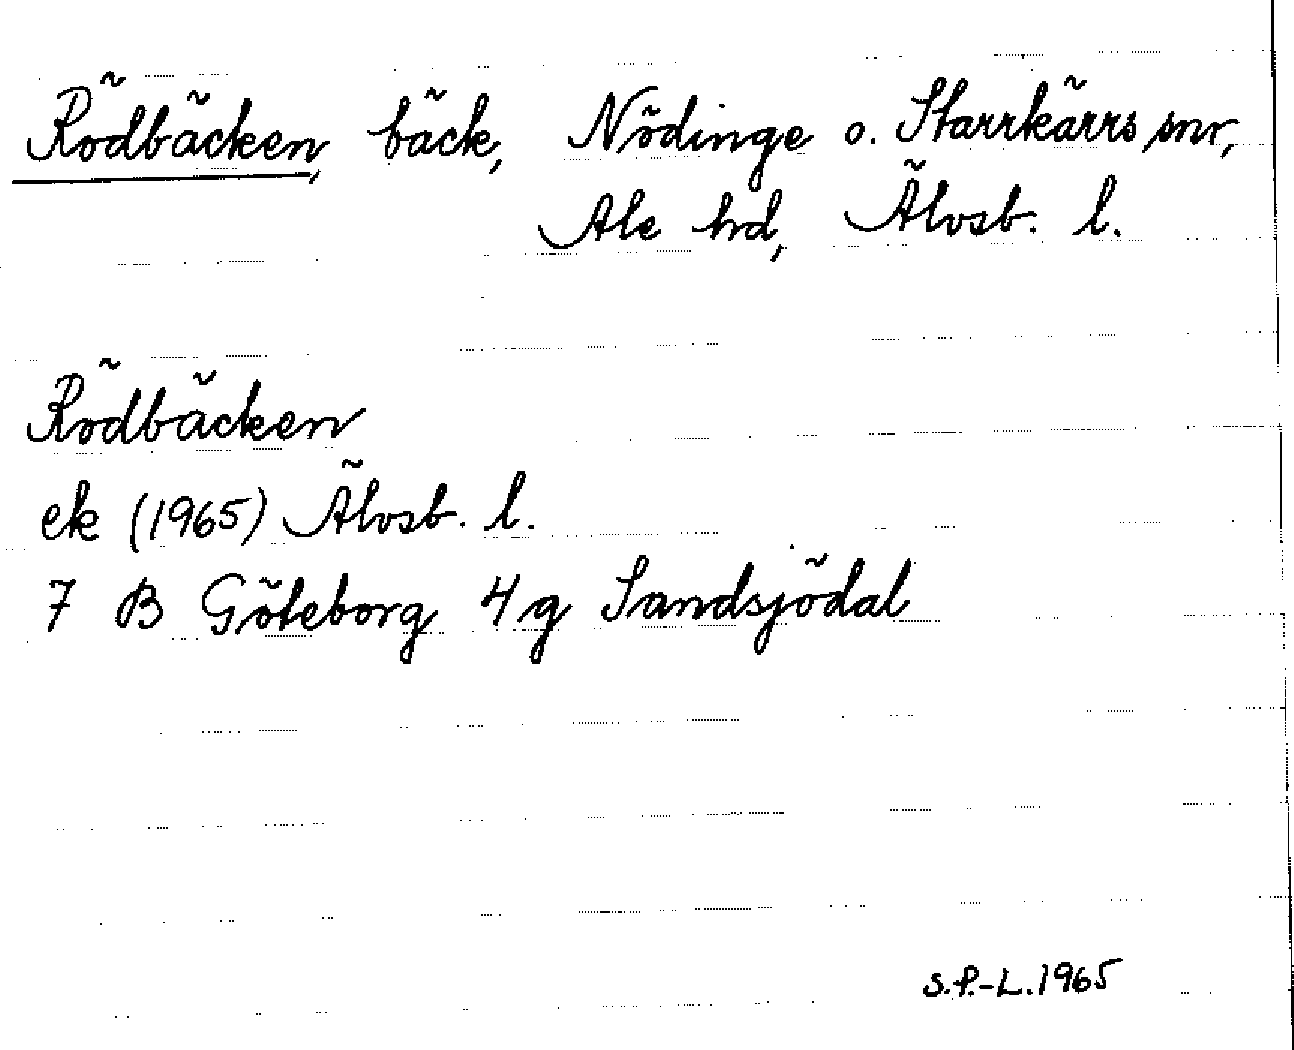 Rödbäcken, bäck, Nödinge o. Starrkärrs snr,
Ale hd, Älvsb. l.
Rödbäcken
ek (1965) Älvsb. l.
7 B Göteborg 4g Sandsjödal
S.P.-L. 1965